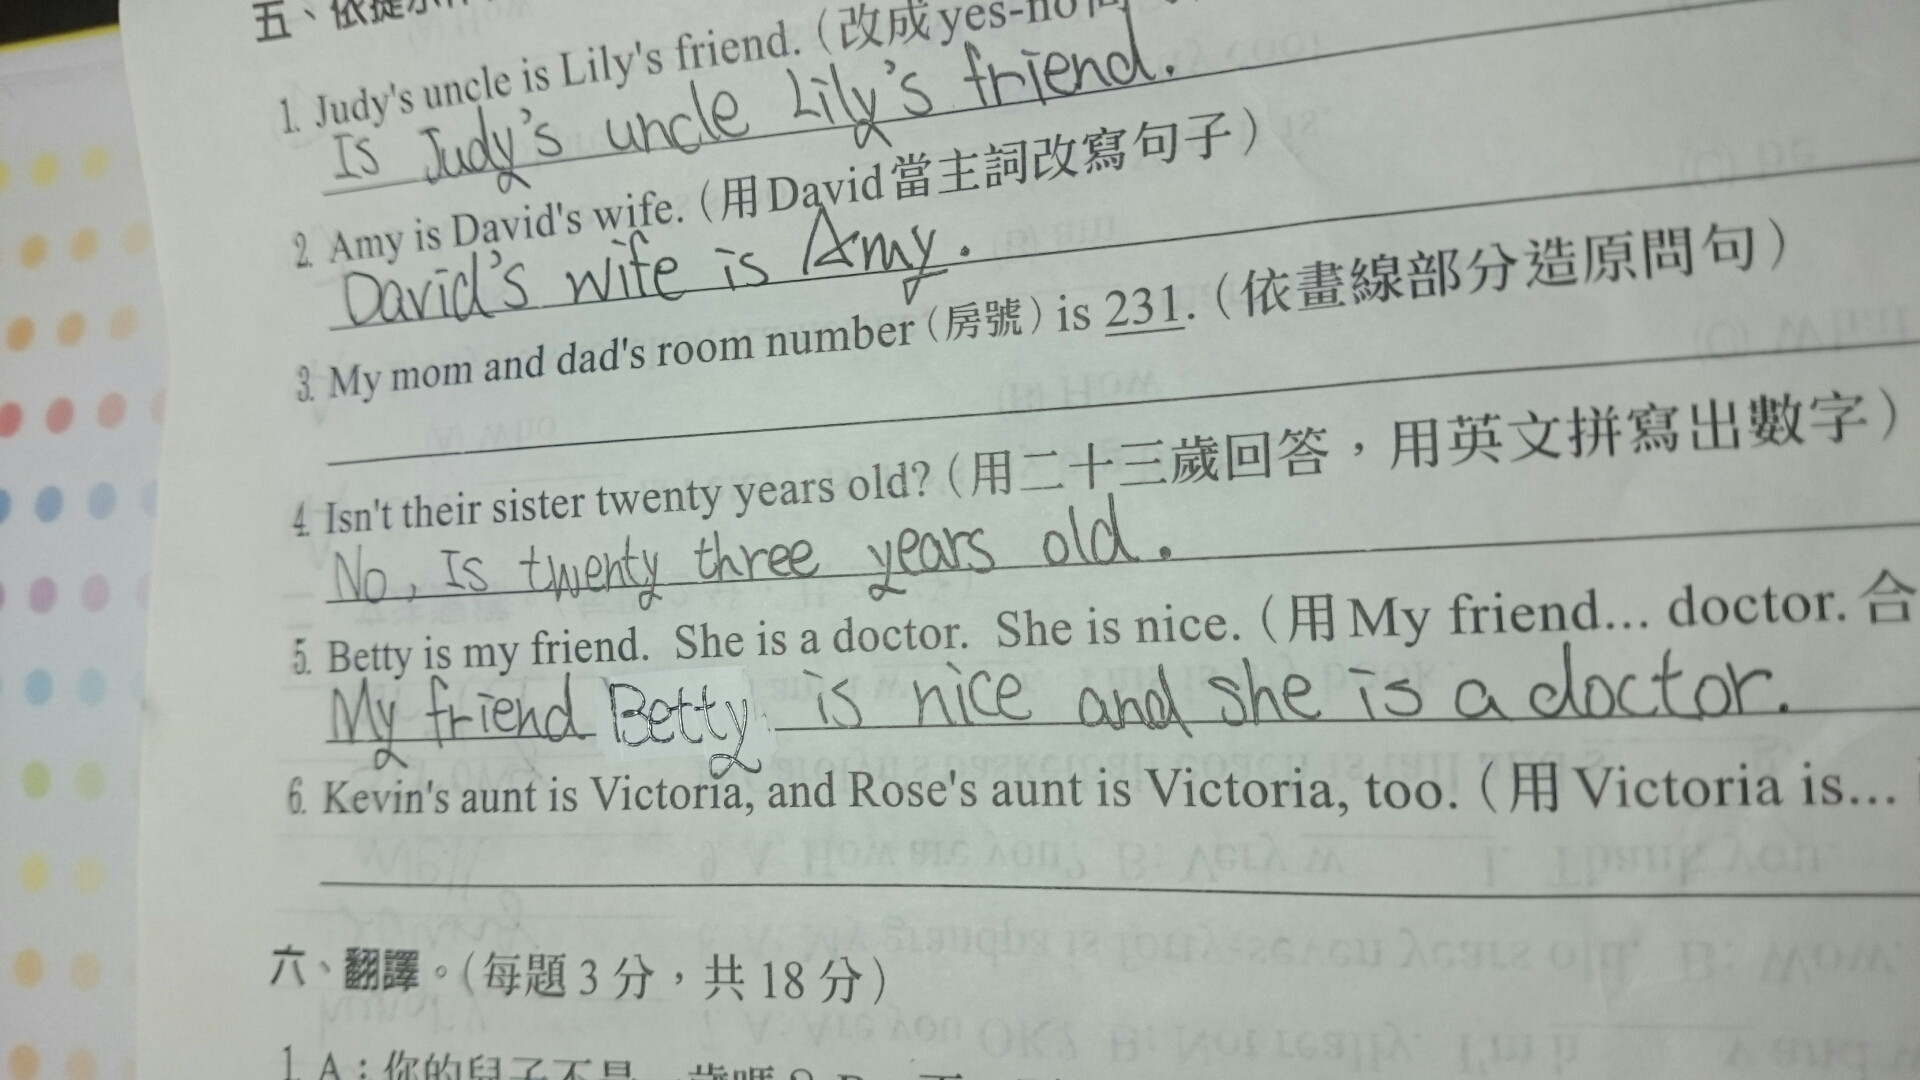 五、依提示
1. Judy's uncle is Lily's friend. (改成 yes-no 問
Is Judy's uncle Lily's friend.
2. Amy is David's wife. (用 David 當主詞改寫句子)
David's wife is Amy.
3. My mom and dad's room number (房號) is 231. (依畫線部分造原問句)
4. Isn't their sister twenty years old? (用二十三歲回答，用英文拼寫出數字)
No, Is twenty three years old.
5. Betty is my friend. She is a doctor. She is nice. (用 My friend... doctor. 合
My friend Betty is nice and she is a doctor.
6. Kevin's aunt is Victoria, and Rose's aunt is Victoria, too. (用 Victoria is...
六、翻譯。(每題 3 分，共 18 分)
1. A：你的兒子不是 歲嗎？